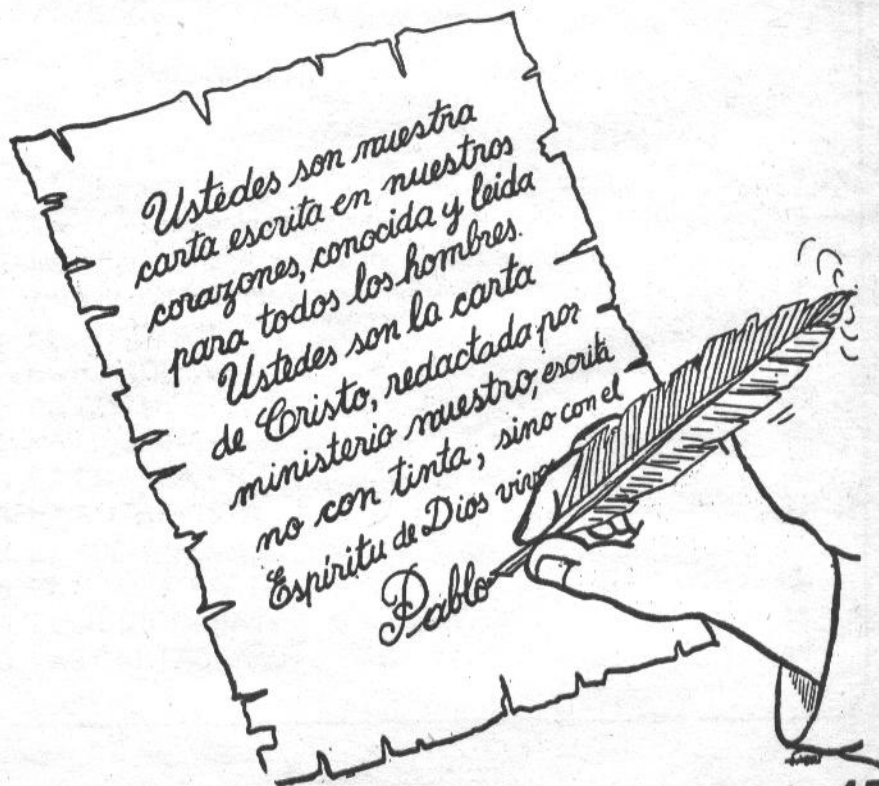 Ustedes son nuestra
carta escrita en nuestros
corazones, conocida y leida
para todos los hombres.
Ustedes son la carta
de Cristo, redactada por
ministerio nuestro, escrita
no con tinta, sino con el
Espíritu de Dios vivo
Pablo